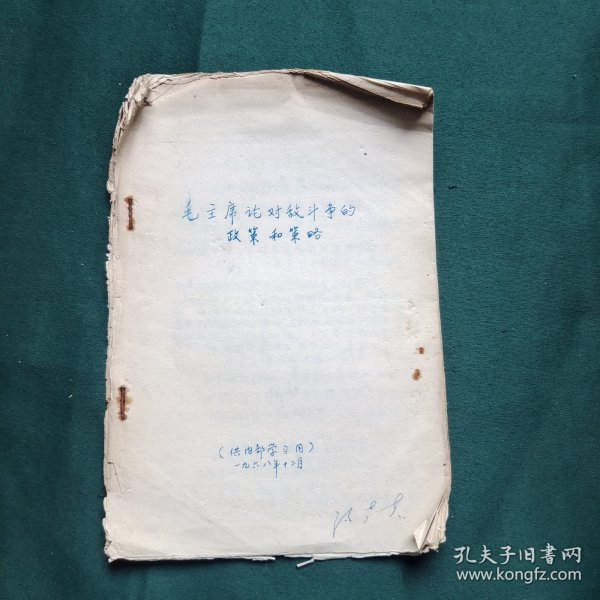 毛主席论对敌斗争的
政策和策略
（供内部学习用）
一九六八年十二月
孔夫子旧书网
www.kongfz.com